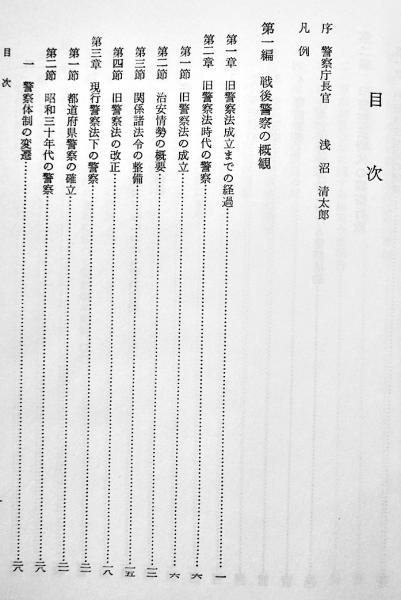 目次
序　警察庁長官　浅沼清太郎
凡例
第一編　戦後警察の概観
第一章　旧警察法成立までの経過……一
第二章　旧警察法時代の警察……六
第一節　旧警察法の成立……六
第二節　治安情勢の概要……三
第三節　関係諸法令の整備……一五
第四節　旧警察法の改正……一八
第三章　現行警察法下の警察……二二
第一節　都道府県警察の確立……二二
第二節　昭和三十年代の警察……二八
一　警察体制の変遷……二八
目次